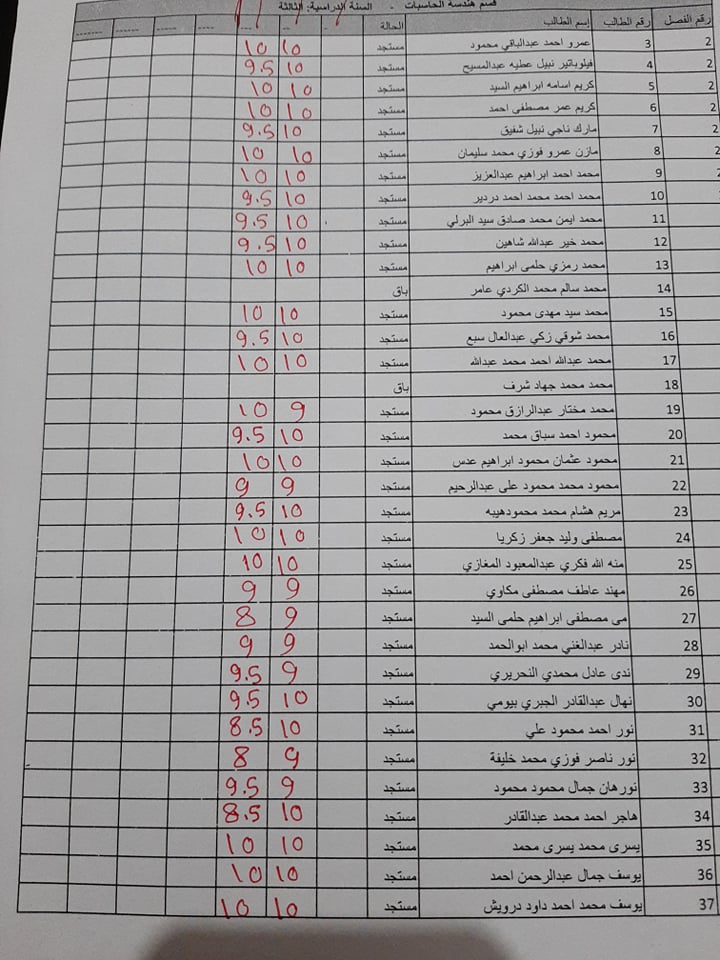 قسم هندسة الحاسبات - السنة الدراسية: الثالثة
رقم الفصل رقم الطالب إسم الطالب الحالة
2 3 عمرو احمد عبدالباقي محمود مستجد 10 10
2 4 فيلوباتير نبيل عطيه عبدالمسيح مستجد 10 9.5
2 5 كريم اسامه ابراهيم السيد مستجد 10 10
2 6 كريم عمر مصطفى احمد مستجد 10 10
2 7 مارك ناجي نبيل شفيق مستجد 10 9.5
2 8 مازن عمرو فوزي محمد سليمان مستجد 10 10
2 9 محمد احمد ابراهيم عبدالعزيز مستجد 10 10
10 محمد احمد محمد احمد دردير مستجد 10 9.5
11 محمد ايمن محمد صادق سيد البرلي مستجد 10 9.5
12 محمد خير عبدالله شاهين مستجد 10 9.5
13 محمد رمزي حلمى ابراهيم مستجد 10 10
14 محمد سالم محمد الكردي عامر باق
15 محمد سيد مهدى محمود مستجد 10 10
16 محمد شوقي زكي عبدالعال سبع مستجد 10 9.5
17 محمد عبدالله احمد محمد عبدالله مستجد 10 10
18 محمد محمد جهاد شرف باق
19 محمد مختار عبدالرازق محمود مستجد 9 10
20 محمود احمد سباق محمد مستجد 10 9.5
21 محمود عثمان محمود ابراهيم عدس مستجد 10 10
22 محمود محمد محمود على عبدالرحيم مستجد 9 9
23 مريم هشام محمد محمودهيبه مستجد 10 9.5
24 مصطفى وليد جعفر زكريا مستجد 10 10
25 منه الله فكري عبدالمعبود المغازي مستجد 10 10
26 مهند عاطف مصطفى مكاوي مستجد 9 9
27 مى مصطفى ابراهيم حلمى السيد مستجد 9 8
28 نادر عبدالغني محمد ابوالحمد مستجد 9 9
29 ندى عادل محمدي النحريري مستجد 9 9.5
30 نهال عبدالقادر الجبري بيومي مستجد 10 9.5
31 نور احمد محمود علي مستجد 10 8.5
32 نور ناصر فوزي محمد خليفة مستجد 9 8
33 نورهان جمال محمود محمود مستجد 9 9.5
34 هاجر احمد محمد عبدالقادر مستجد 10 8.5
35 يسرى محمد يسرى محمد مستجد 10 10
36 يوسف جمال عبدالرحمن احمد مستجد 10 10
37 يوسف محمد احمد داود درويش مستجد 10 10